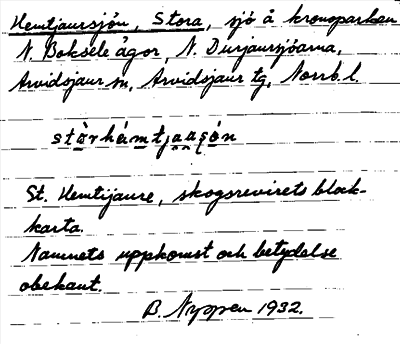 Hemtjaursjön, Stora, sjö å kronoparken
N. Boksele ägor, N. Durjaursjöarna,
Arvidsjaur sn, Arvidsjaur tg, Norrb. l.
St. Hemtijaure, skogsrevirets block-
karta.
Namnets uppkomst och betydelse
obekant.
B. Nyppen 1932.